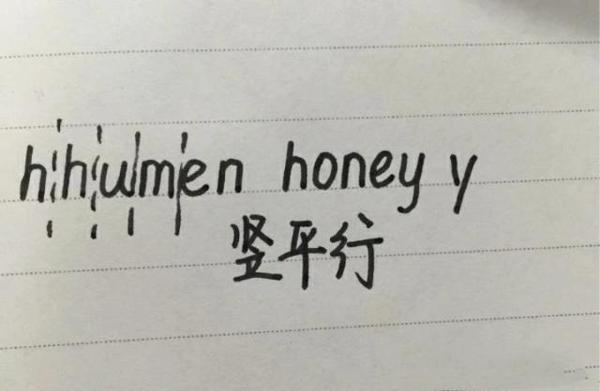 hhumen honey y
竖平行